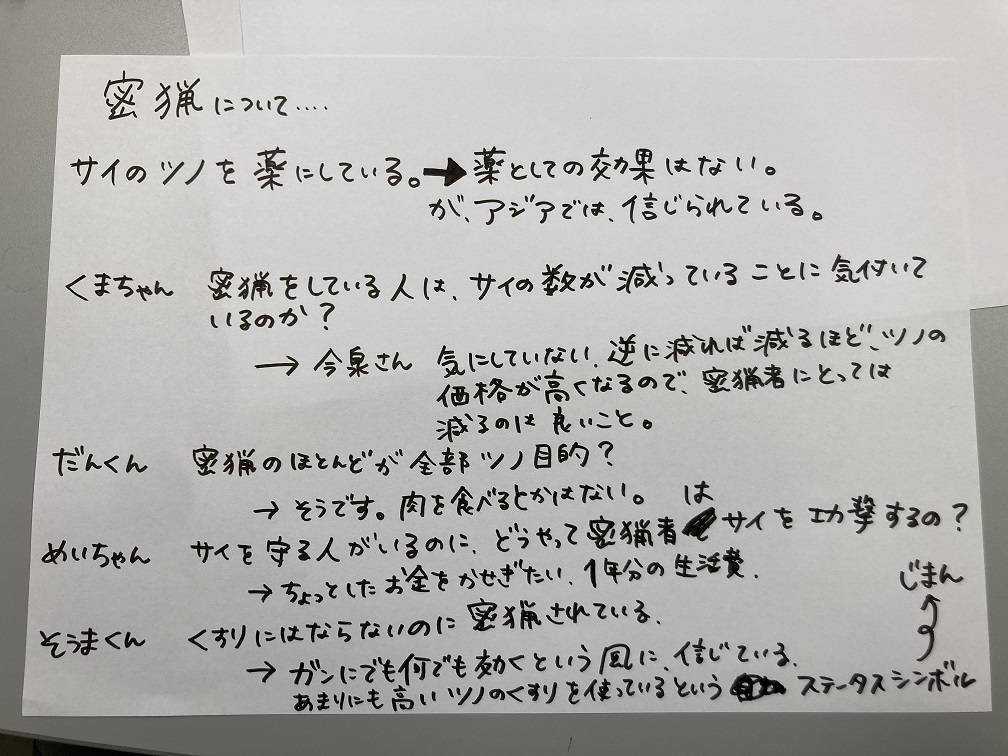 密猟について....
サイのツノを薬にしている。→薬としての効果はない。
が、アジアでは、信じられている。
くまちゃん 密猟をしている人は、サイの数が減っていることに気付いて
いるのか?
→ 今泉さん 気にしていない、逆に減れば減るほど、ツノの
価格が高くなるので、密猟者にとっては
減るのは良いこと。
だんくん 密猟のほとんどが全部ツノ目的?
→ そうです。肉を食べるとかはない。
めいちゃん サイを守る人がいるのに、どうやって密猟者はサイを功撃するの?
→ ちょっとしたお金をかせぎたい、1年分の生活費、
そうまくん くすりにはならないのに密猟されている、
→ ガンにでも何でも効くという風に、信じている、
あまりにも高いツノのくすりを使っているという ステータスシンボル
→ じまん